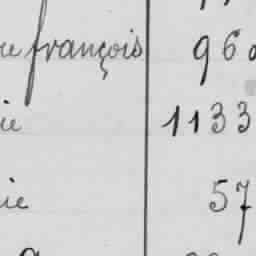 françois 960
ie 1133
ie 57